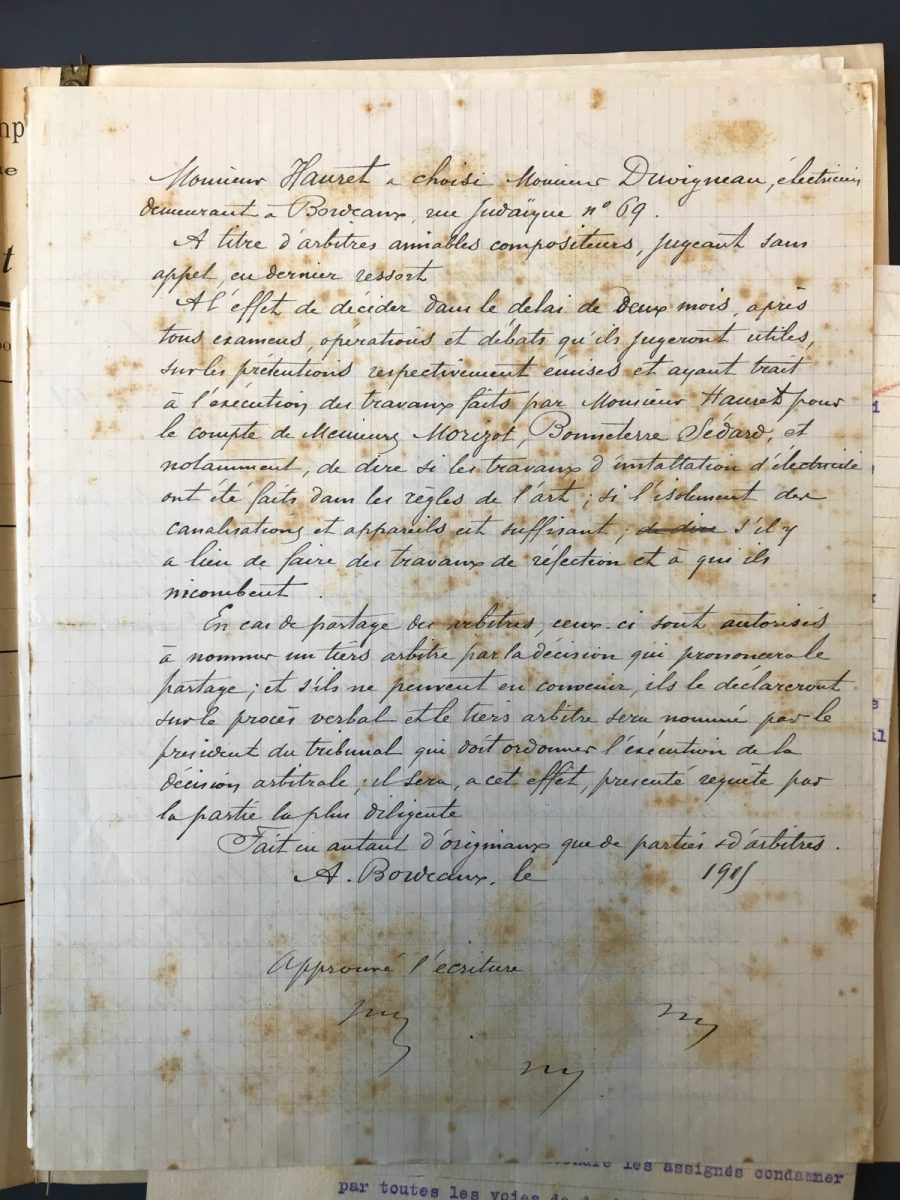 Monsieur Hauret a choisi Monsieur Duvigneau, électricien
demeurant à Bordeaux, rue Judaïque n° 69.
A titre d'arbitres amiables compositeurs, jugeant sans
appel, en dernier ressort
A l'effet de décider dans le délai de Deux mois, après
tous examens, opérations et débats qu'ils jugeront utiles,
sur les prétentions respectivement émises et ayant trait
à l'exécution des travaux faits par Monsieur Hauret pour
le compte de Messieurs Morizot, Bonneterre Sédard, et
notamment, de dire si les travaux d'installation d'électricité
ont été faits dans les règles de l'art; si l'isolement des
canalisations et appareils est suffisant; de dire s'il y
a lieu de faire des travaux de réfection et à qui ils
incombent.
En cas de partage des arbitres, ceux-ci sont autorisés
à nommer un tiers arbitre par la décision qui prononcera le
partage; et s'ils ne peuvent en convenir, ils le déclareront
sur le procès verbal et le tiers arbitre sera nommé par le
président du tribunal qui doit ordonner l'exécution de la
décision arbitrale; il sera, a cet effet, présenté requête par
la partie la plus diligente
Fait en autant d'originaux que de parties & d'arbitres.
A. Bordeaux, le 191
Approuvé l'écriture
np
t
al
les assignés condamner
par toutes les voies de